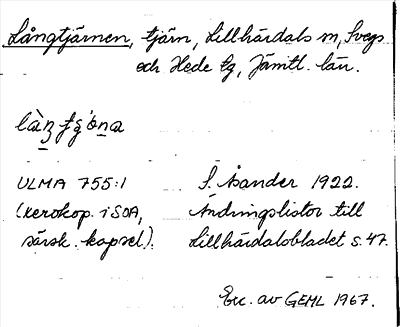 Långtjärnen, tjärn, Lillhärdals sn, Svegs
och Hede tg, Jämtl. län.
ULMA 755:1 S. Åsander 1922.
(xerokop. i SOA, Ändringslistor till
särsk. kapsel). Lillhärdalsbladet s. 47.
Exc. av GEHL 1967.